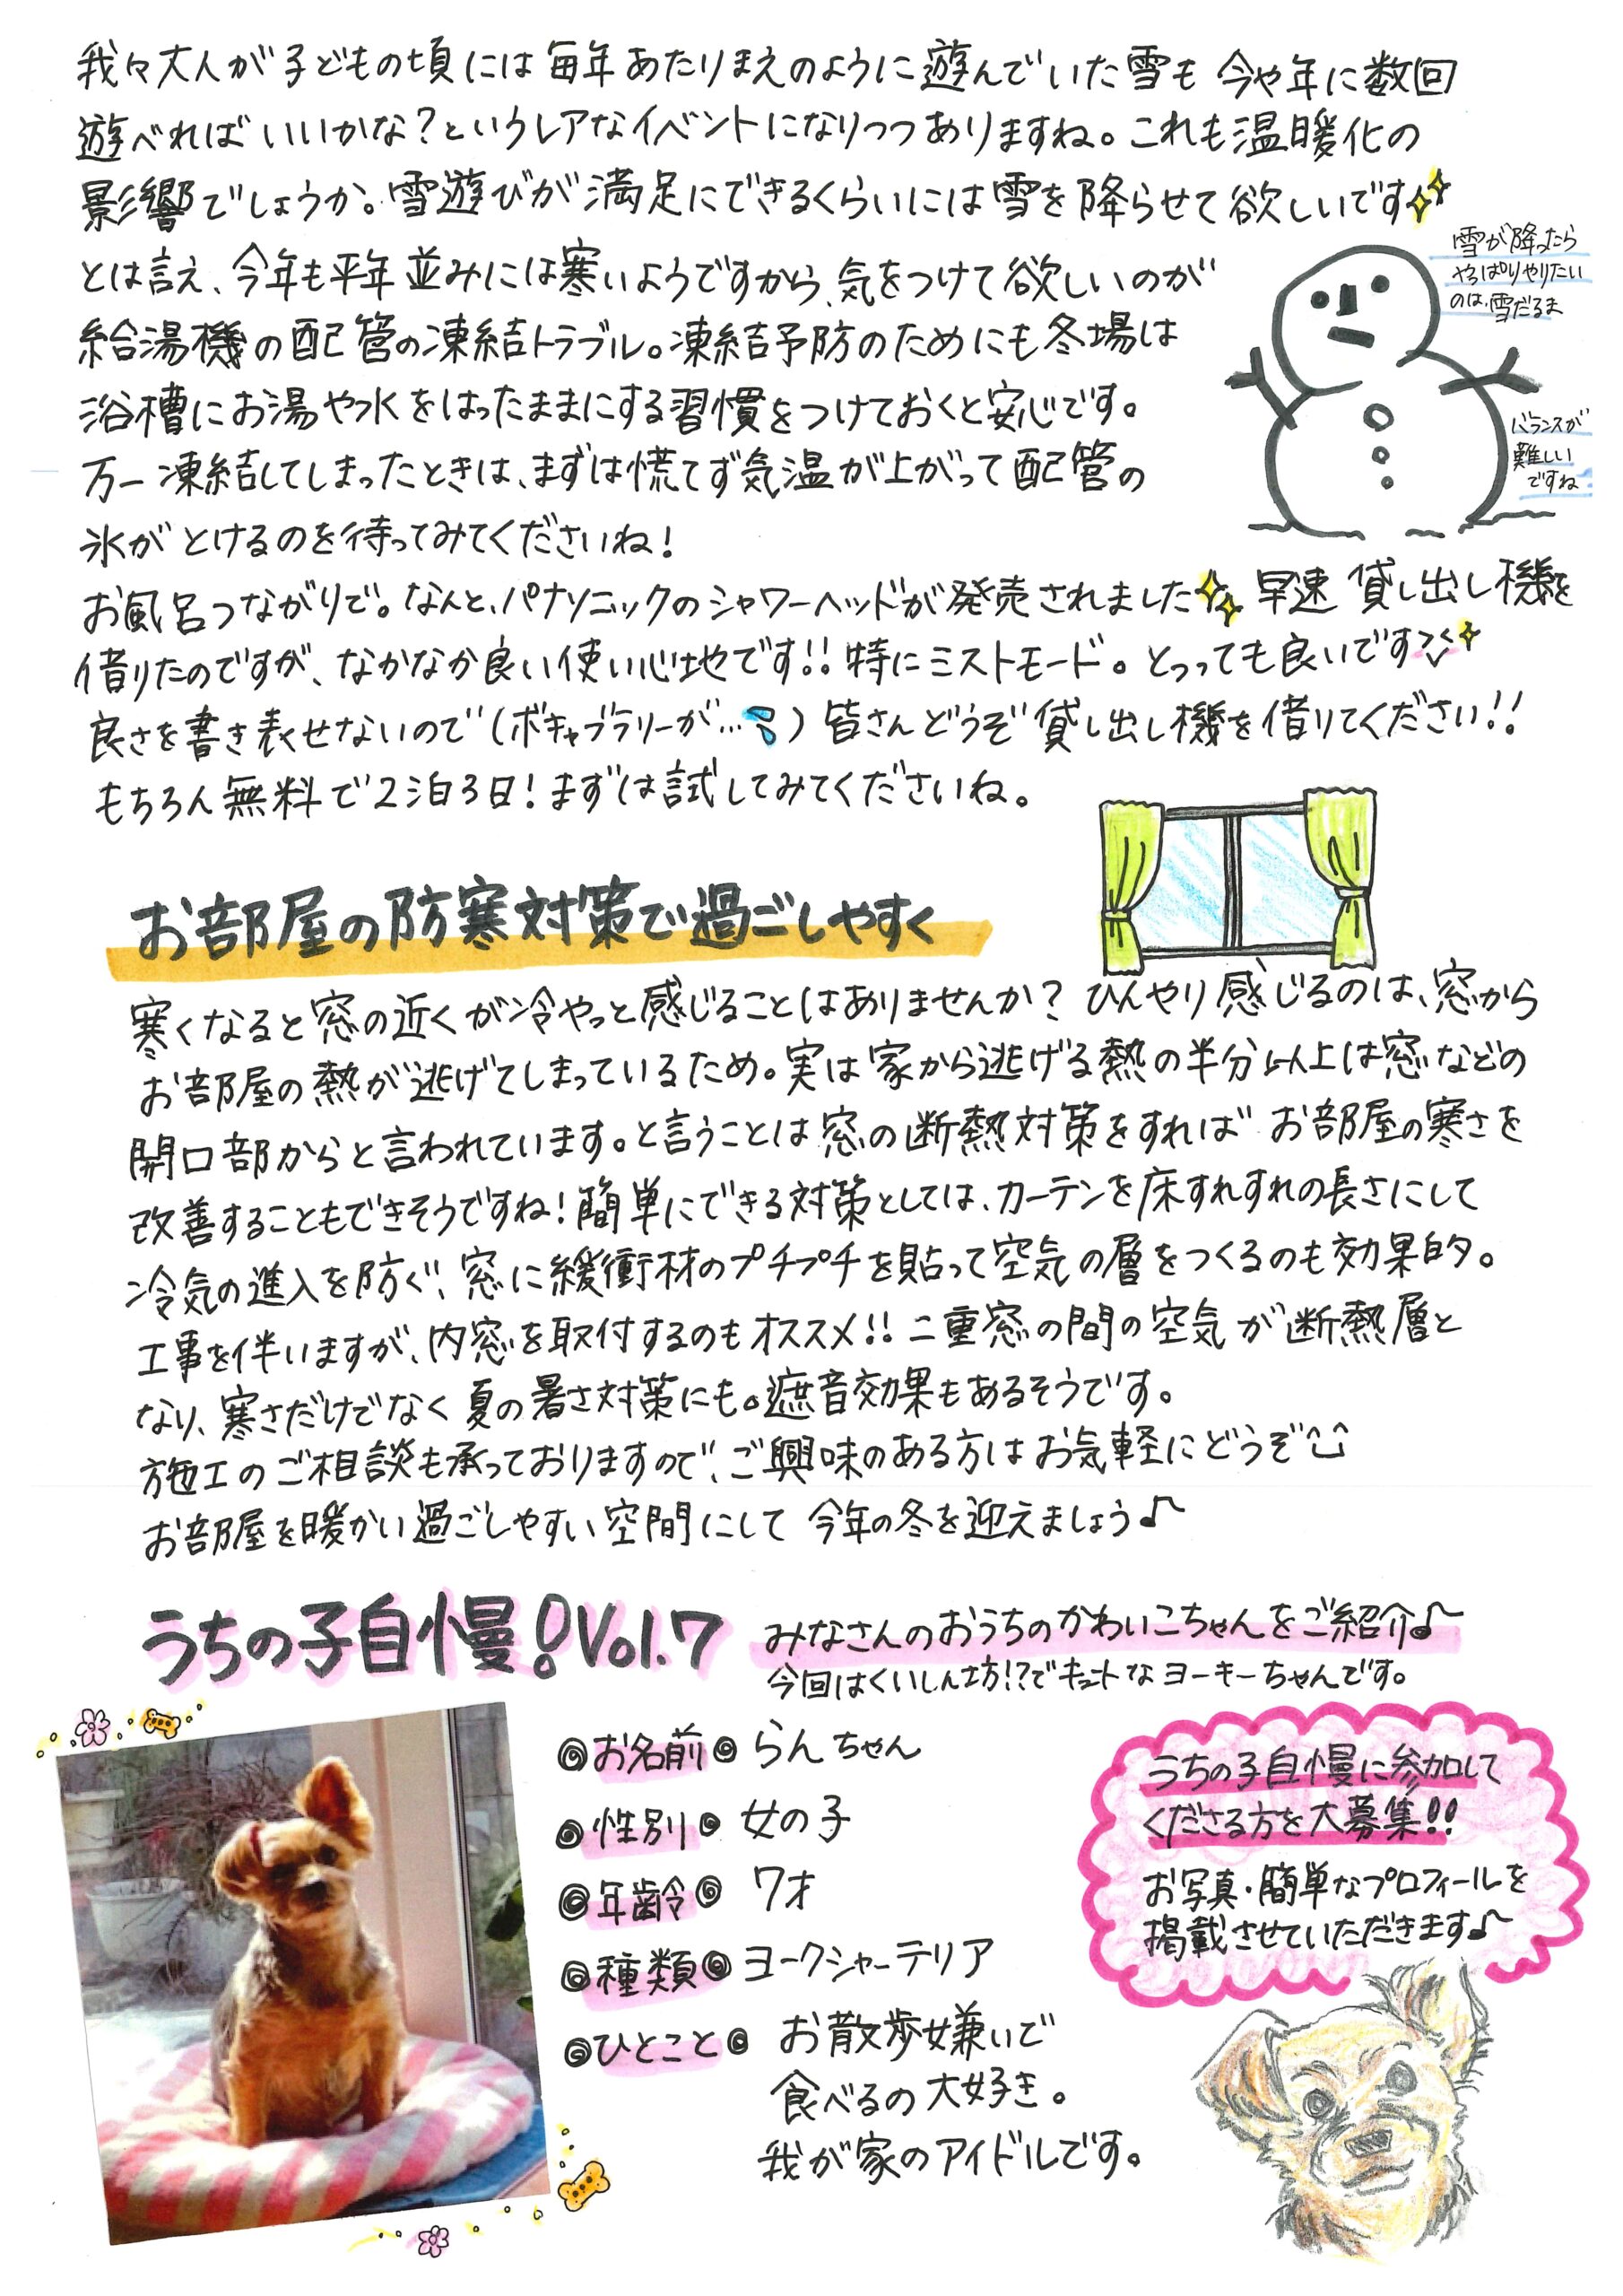 我々大人が子どもの頃には毎年あたりまえのように遊んでいた雪も今や年に数回
遊べればいいかな？というレアなイベントになりつつありますね。これも温暖化の
影響でしょうか。雪遊びが満足にできるくらいには雪を降らせて欲しいです
とは言え、今年も平年並みには寒いようですから、気をつけて欲しいのが
給湯機の配管の凍結トラブル。凍結予防のためにも冬場は
浴槽にお湯や水をはったままにする習慣をつけておくと安心です。
万一凍結してしまったときは、まずは慌てず気温が上がって配管の
氷がとけるのを待ってみてくださいね！
雪が降ったら
やっぱりやりたい
のは、雪だるま
バランスが
難しい
ですね
お風呂つながりで。なんと、パナソニックのシャワーヘッドが発売されました 早速貸し出し機を
借りたのですが、なかなか良い使い心地です!! 特にミストモード。とっっても良いです
良さを書き表せないので（ボキャブラリーが…）皆さんどうぞ貸し出し機を借りてください!!
もちろん無料で2泊3日！まずは試してみてくださいね。
お部屋の防寒対策で過ごしやすく
寒くなると窓の近くが冷やっと感じることはありませんか？ひんやり感じるのは、窓から
お部屋の熱が逃げてしまっているため。実は家から逃げる熱の半分以上は窓などの
開口部からと言われています。と言うことは窓の断熱対策をすればお部屋の寒さを
改善することもできそうですね！簡単にできる対策としては、カーテンを床すれすれの長さにして
冷気の進入を防ぐ、窓に緩衝材のプチプチを貼って空気の層をつくるのも効果的。
工事を伴いますが、内窓を取付するのもオススメ!! 二重窓の間の空気が断熱層と
なり、寒さだけでなく夏の暑さ対策にも。遮音効果もあるそうです。
施工のご相談も承っておりますので、ご興味のある方はお気軽にどうぞ
お部屋を暖かい過ごしやすい空間にして今年の冬を迎えましょう♪
うちの子自慢！Vol.7
みなさんのおうちのかわいこちゃんをご紹介♪
今回はくいしん坊!?でキュートなヨーキーちゃんです。
◎お名前◎ らんちゃん
◎性別◎ 女の子
◎年齢◎ 7才
◎種類◎ ヨークシャーテリア
◎ひとこと◎ お散歩嫌いで
食べるの大好き。
我が家のアイドルです。
うちの子自慢に参加して
くださる方を大募集!!
お写真・簡単なプロフィールを
掲載させていただきます♪